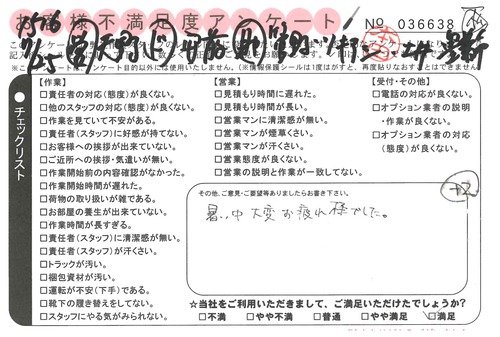 お客様不満足度アンケート
No 036638
●チェックリスト
【作業】
□責任者の対応(態度)が良くない。
□他のスタッフの対応(態度)が良くない。
□作業を見ていて不安がある。
□責任者(スタッフ)に好感が持てない。
□お客様への挨拶が出来ていない。
□ご近所への挨拶・気遣いが無い。
□作業開始前の内容確認がなかった。
□作業開始時間が遅れた。
□荷物の取り扱いが雑である。
□お部屋の養生が出来ていない。
□作業時間が長すぎる。
□責任者(スタッフ)に清潔感が無い。
□責任者(スタッフ)が汗くさい。
□トラックが汚い。
□梱包資材が汚い。
□運転が不安(下手)である。
□靴下の履き替えをしてない。
□スタッフにやる気がみられない。
【営業】
□見積もり時間に遅れた。
□見積もり時間が長い。
□営業マンに清潔感が無い。
□営業マンが煙草くさい。
□営業マンが汗くさい。
□営業態度が良くない。
□営業の説明と作業が一致してない。
【受付・その他】
□電話の対応が良くない。
□オプション業者の説明
・作業が良くない。
□オプション業者の対応
(態度)が良くない。
その他、ご意見・ご要望等ありましたらお書き下さい。
暑い中大変お疲れ様でした。
☆当社をご利用いただきまして、ご満足いただけたでしょうか?
□不満 □やや不満 □普通 □やや満足 □満足